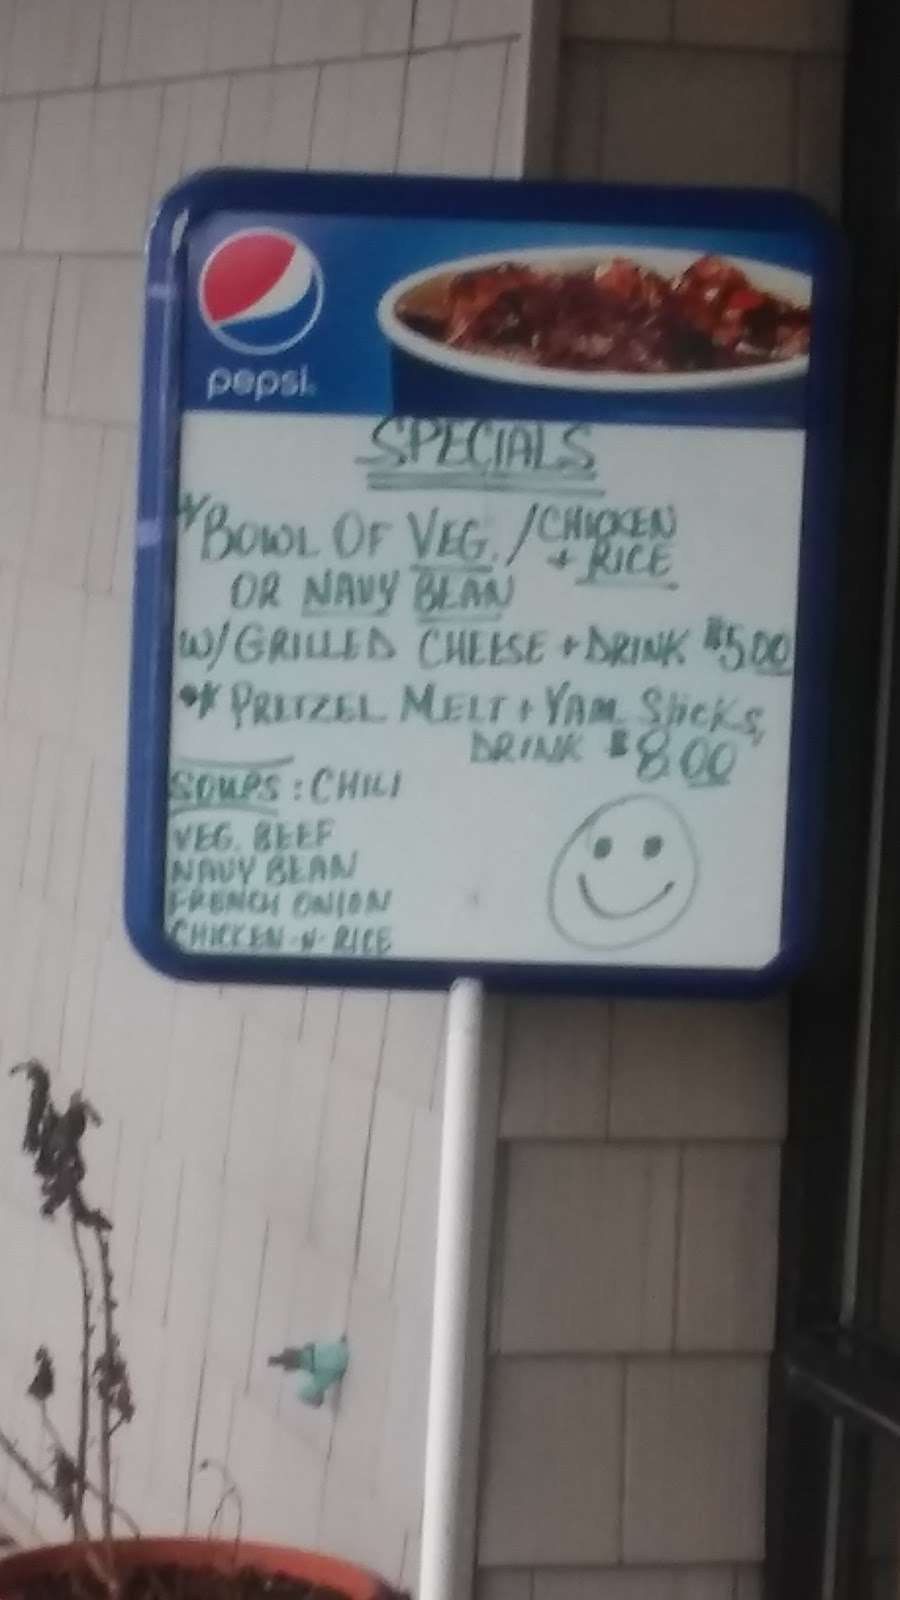 pepsi
SPECIALS
* BOWL OF VEG. / CHICKEN + RICE
OR NAVY BEAN
W/ GRILLED CHEESE + DRINK $5.00
* PRETZEL MELT + YAM Sticks,
DRINK $8.00
SOUPS: CHILI
VEG. BEEF
NAVY BEAN
FRENCH ONION
CHICKEN-N-RICE